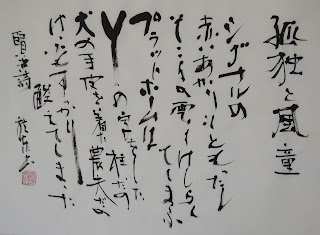 孤独と風童
シグナルの
赤いあかりもともったし
そこらの雲も
てしまふ
プラットホームは
Yの字をした
柱だの
犬の毛皮を着た農夫だの
けふもすっかり
酸えてしまった
賢治詩